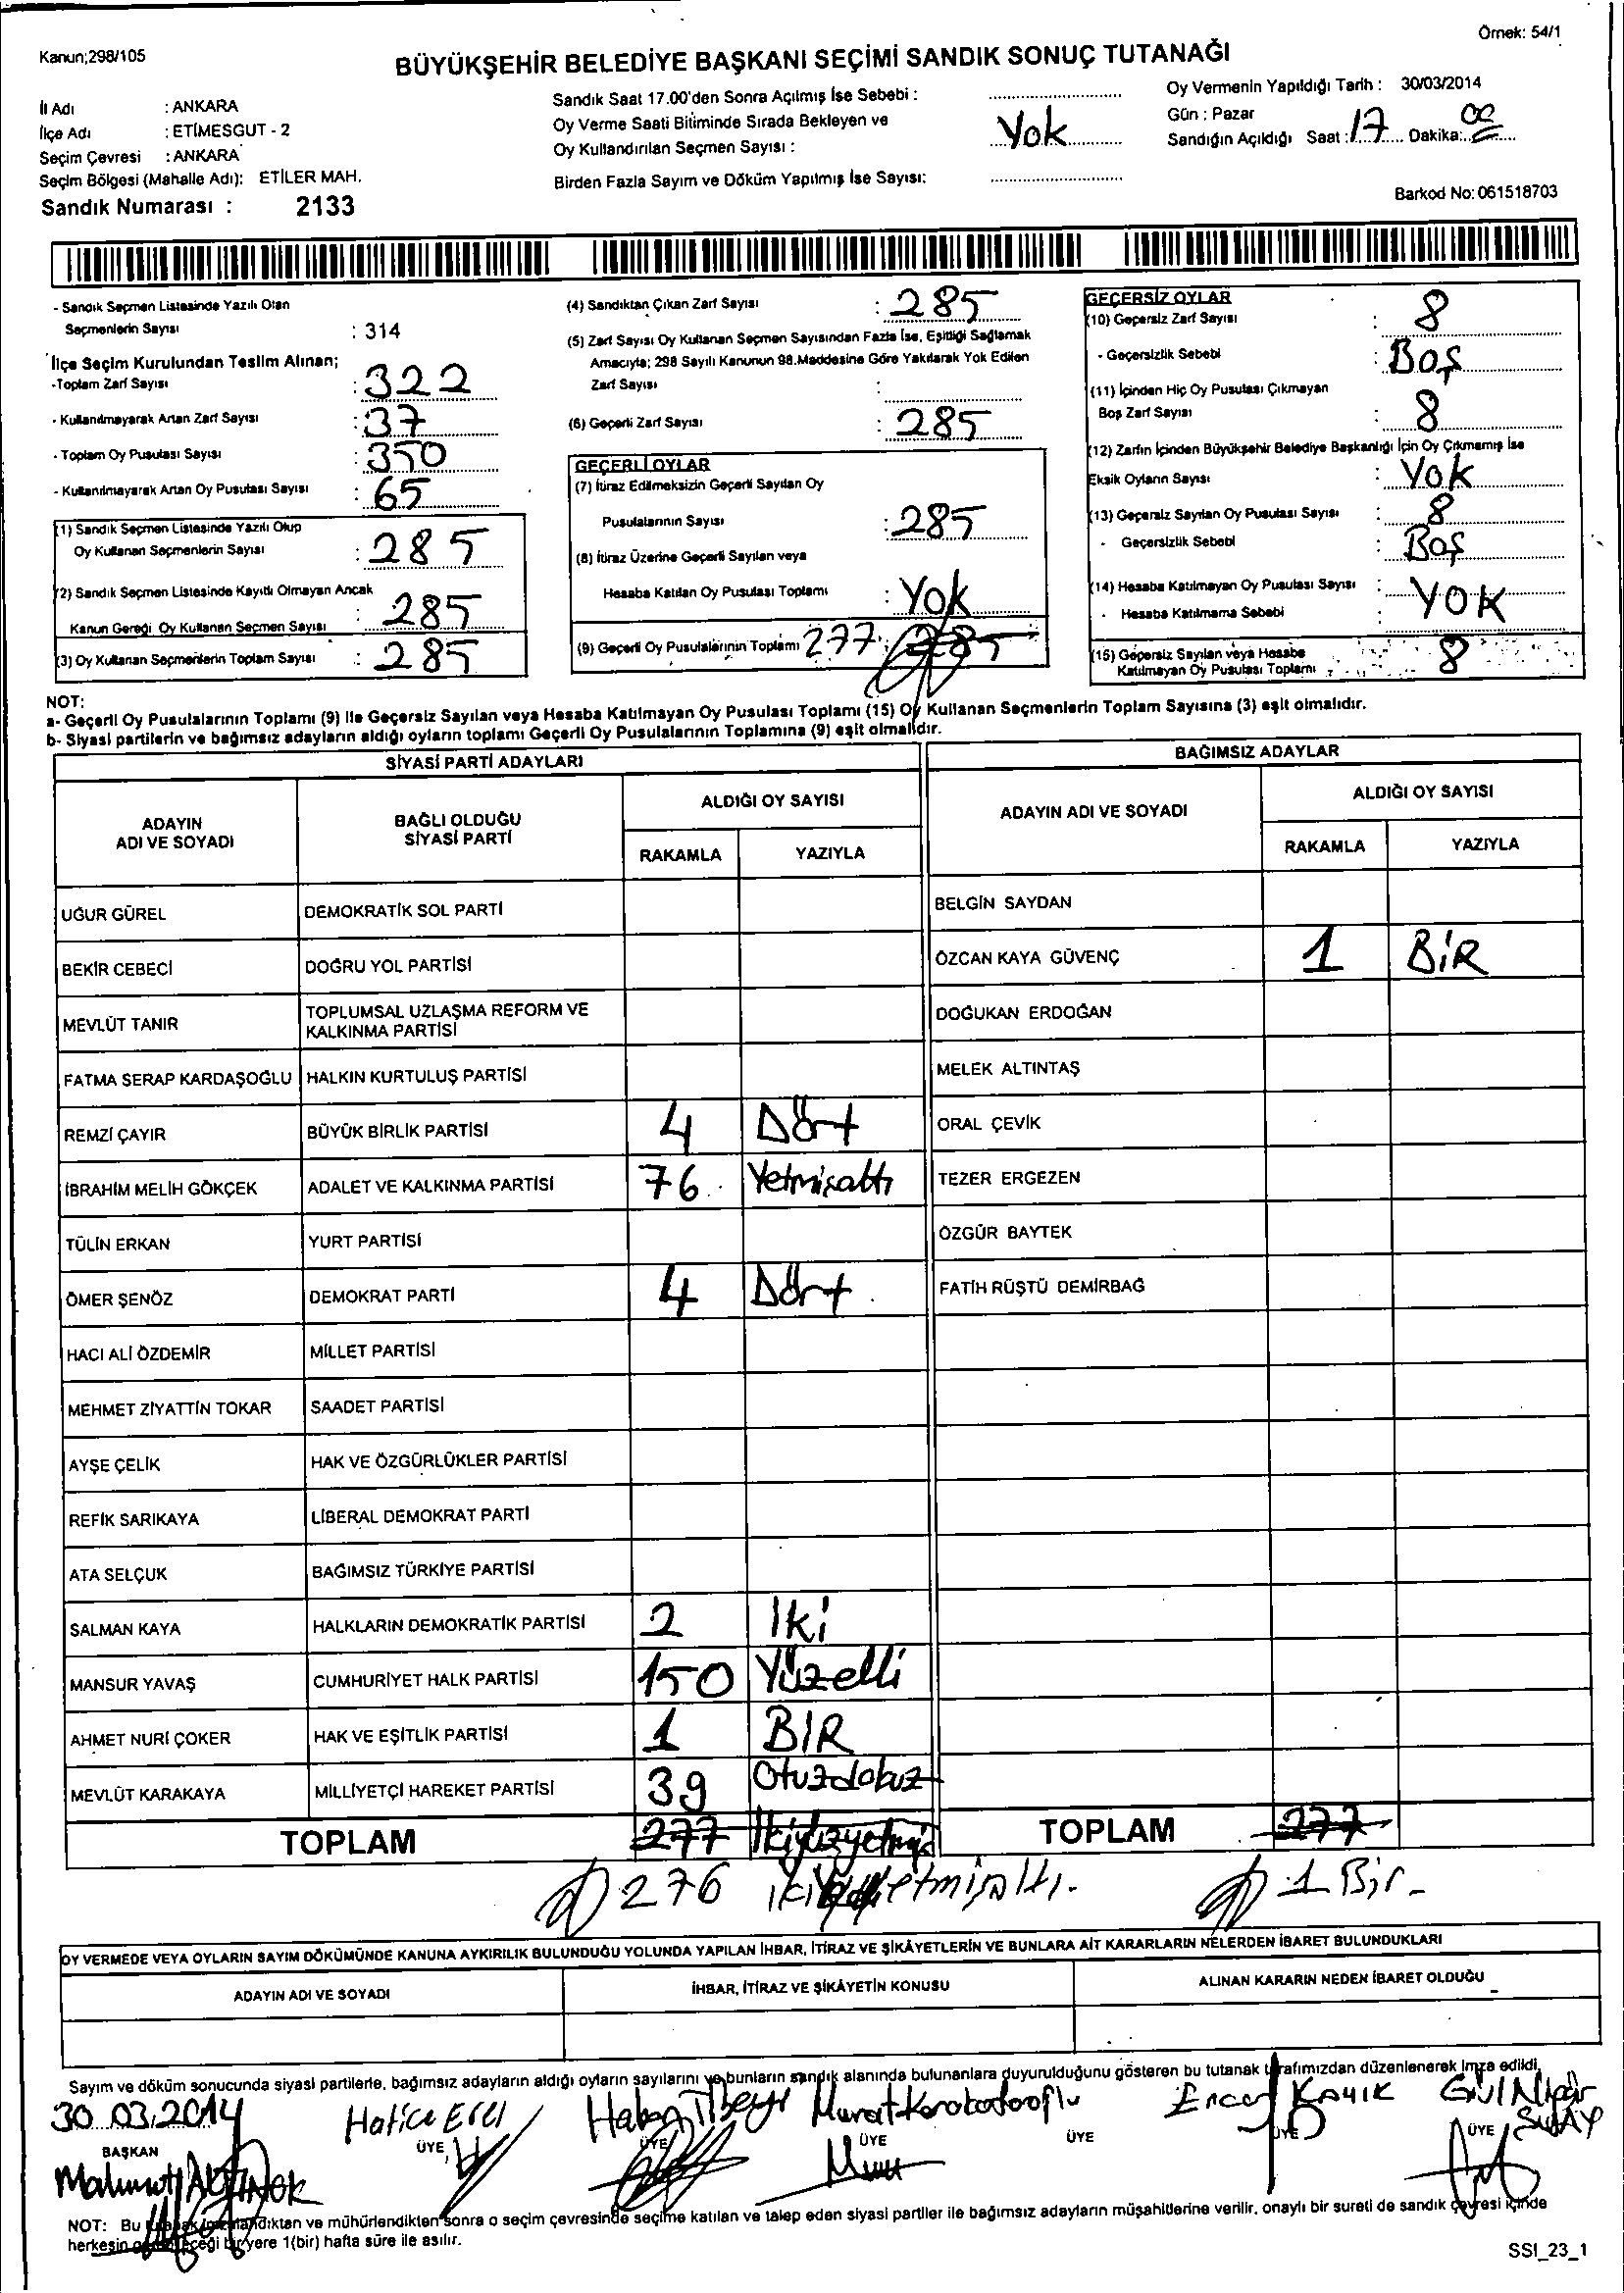 Kanun;298/105
Örnek: 54/1
BÜYÜKŞEHİR BELEDİYE BAŞKANI SEÇİMİ SANDIK SONUÇ TUTANAĞI
İl Adı : ANKARA
İlçe Adı : ETİMESGUT - 2
Seçim Çevresi : ANKARA
Seçim Bölgesi (Mahalle Adı): ETİLER MAH.
Sandık Numarası : 2133
Sandık Saat 17.00'den Sonra Açılmış İse Sebebi :
Oy Verme Saati Bitiminde Sırada Bekleyen ve
Oy Kullandırılan Seçmen Sayısı : Yok
Birden Fazla Sayım ve Döküm Yapılmış İse Sayısı:
Oy Vermenin Yapıldığı Tarih : 30/03/2014
Gün : Pazar
Sandığın Açıldığı Saat : 17 Dakika: 00
Barkod No: 061518703
- Sandık Seçmen Listesinde Yazılı Olan
Seçmenlerin Sayısı : 314
İlçe Seçim Kurulundan Teslim Alınan;
-Toplam Zarf Sayısı : 322
- Kullanılmayarak Artan Zarf Sayısı : 37
- Toplam Oy Pusulası Sayısı : 350
- Kullanılmayarak Artan Oy Pusulası Sayısı : 65
(1) Sandık Seçmen Listesinde Yazılı Olup
Oy Kullanan Seçmenlerin Sayısı : 285
(2) Sandık Seçmen Listesinde Kayıtlı Olmayan Ancak
Kanun Gereği Oy Kullanan Seçmen Sayısı : 285
(3) Oy Kullanan Seçmenlerin Toplam Sayısı : 285
(4) Sandıktan Çıkan Zarf Sayısı : 285
(5) Zarf Sayısı Oy Kullanan Seçmen Sayısından Fazla İse, Eşitliği Sağlamak
Amacıyla; 298 Sayılı Kanunun 98.Maddesine Göre Yakılarak Yok Edilen
Zarf Sayısı :
(6) Geçerli Zarf Sayısı : 285
GEÇERLİ OYLAR
(7) İtiraz Edilmeksizin Geçerli Sayılan Oy
Pusulalarının Sayısı : 285
(8) İtiraz Üzerine Geçerli Sayılan veya
Hesaba Katılan Oy Pusulası Toplamı : Yok
(9) Geçerli Oy Pusulalarının Toplamı 277 285
GEÇERSİZ OYLAR
(10) Geçersiz Zarf Sayısı : 8
- Geçersizlik Sebebi : Boş
(11) İçinden Hiç Oy Pusulası Çıkmayan
Boş Zarf Sayısı : 8
(12) Zarfın İçinden Büyükşehir Belediye Başkanlığı İçin Oy Çıkmamış İse
Eksik Oyların Sayısı : Yok
(13) Geçersiz Sayılan Oy Pusulası Sayısı : 8
- Geçersizlik Sebebi : Boş
(14) Hesaba Katılmayan Oy Pusulası Sayısı : YOK
- Hesaba Katılmama Sebebi :
(15) Geçersiz Sayılan veya Hesaba
Katılmayan Oy Pusulası Toplamı : 8
NOT:
a- Geçerli Oy Pusulalarının Toplamı (9) İle Geçersiz Sayılan veya Hesaba Katılmayan Oy Pusulası Toplamı (15) Oy Kullanan Seçmenlerin Toplam Sayısına (3) eşit olmalıdır.
b- Siyasi partilerin ve bağımsız adayların aldığı oyların toplamı Geçerli Oy Pusulalarının Toplamına (9) eşit olmalıdır.
SİYASİ PARTİ ADAYLARI
ADAYIN ADI VE SOYADI
BAĞLI OLDUĞU SİYASİ PARTİ
ALDIĞI OY SAYISI
RAKAMLA YAZIYLA
UĞUR GÜREL DEMOKRATİK SOL PARTİ
BEKİR CEBECİ DOĞRU YOL PARTİSİ
MEVLÜT TANIR TOPLUMSAL UZLAŞMA REFORM VE KALKINMA PARTİSİ
FATMA SERAP KARDAŞOĞLU HALKIN KURTULUŞ PARTİSİ
REMZİ ÇAYIR BÜYÜK BİRLİK PARTİSİ 4 Dört
İBRAHİM MELİH GÖKÇEK ADALET VE KALKINMA PARTİSİ 76 Yetmişaltı
TÜLİN ERKAN YURT PARTİSİ
ÖMER ŞENÖZ DEMOKRAT PARTİ 4 Dört
HACI ALİ ÖZDEMİR MİLLET PARTİSİ
MEHMET ZİYATTİN TOKAR SAADET PARTİSİ
AYŞE ÇELİK HAK VE ÖZGÜRLÜKLER PARTİSİ
REFİK SARIKAYA LİBERAL DEMOKRAT PARTİ
ATA SELÇUK BAĞIMSIZ TÜRKİYE PARTİSİ
SALMAN KAYA HALKLARIN DEMOKRATİK PARTİSİ 2 İki
MANSUR YAVAŞ CUMHURİYET HALK PARTİSİ 150 Yüzelli
AHMET NURİ ÇOKER HAK VE EŞİTLİK PARTİSİ 1 BİR
MEVLÜT KARAKAYA MİLLİYETÇİ HAREKET PARTİSİ 39 Otuzdokuz
TOPLAM 277 İkiyüzyetmiş
276
BAĞIMSIZ ADAYLAR
ADAYIN ADI VE SOYADI
ALDIĞI OY SAYISI
RAKAMLA YAZIYLA
BELGİN SAYDAN
ÖZCAN KAYA GÜVENÇ 1 BİR
DOĞUKAN ERDOĞAN
MELEK ALTINTAŞ
ORAL ÇEVİK
TEZER ERGEZEN
ÖZGÜR BAYTEK
FATİH RÜŞTÜ DEMİRBAĞ
TOPLAM 277
1 Bir
OY VERMEDE VEYA OYLARIN SAYIM DÖKÜMÜNDE KANUNA AYKIRILIK BULUNDUĞU YOLUNDA YAPILAN İHBAR, İTİRAZ VE ŞİKÂYETLERİN VE BUNLARA AİT KARARLARIN NELERDEN İBARET BULUNDUKLARI
ADAYIN ADI VE SOYADI
İHBAR, İTİRAZ VE ŞİKÂYETİN KONUSU
ALINAN KARARIN NEDEN İBARET OLDUĞU
Sayım ve döküm sonucunda siyasi partilerle, bağımsız adayların aldığı oyların sayılarını ve bunların sandık alanında bulunanlara duyurulduğunu gösteren bu tutanak tarafımızdan düzenlenerek imza edildi.
30.03.2014
BAŞKAN
Hatice Erel ÜYE
Hakan ÜYE
Murat ÜYE
ÜYE
Ercan KAYIK ÜYE
ÜYE
NOT: Bu ve mühürlendikten sonra o seçim çevresinde seçime katılan ve talep eden siyasi partiler ile bağımsız adayların müşahitlerine verilir, onaylı bir sureti de sandık çevresi içinde
herkesin bir yere 1(bir) hafta süre ile asılır.
SSI_23_1